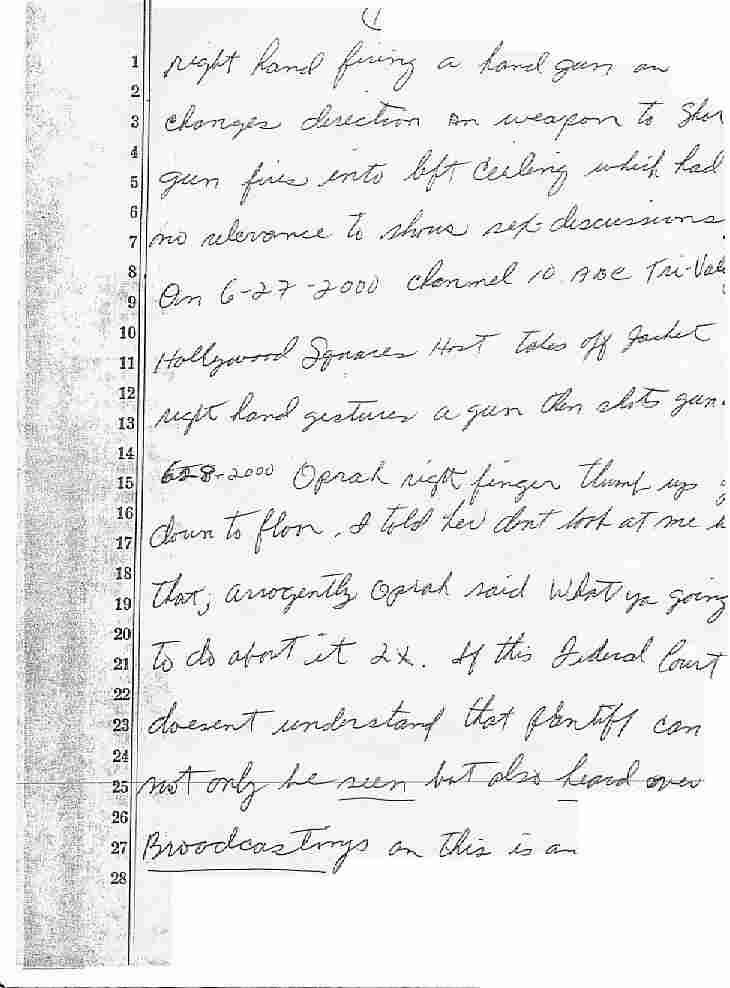 1
1 right hand firing a hand gun an
2
3 changes direction an weapon to
4
5 gun fires into left ceiling which had
6
7 no relevance to shows sex discussions.
8
9 On 6-27-2000 channel 10 ABC Tri-Val
10
11 Hollywood Squares Host takes off Jacket
12
13 right hand gestures a gun then shots gun.
14
15 628-2000 Oprah right finger thump up
16
17 down to floor, I told her dont look at me
18
19 that, arrogently Oprah said What ya going
20
21 to do about it 2x. If this Federal Court
22
23 doesent understand that plantiff can
24
25 not only be seen but also heard over
26
27 Broadcastings an this is an
28